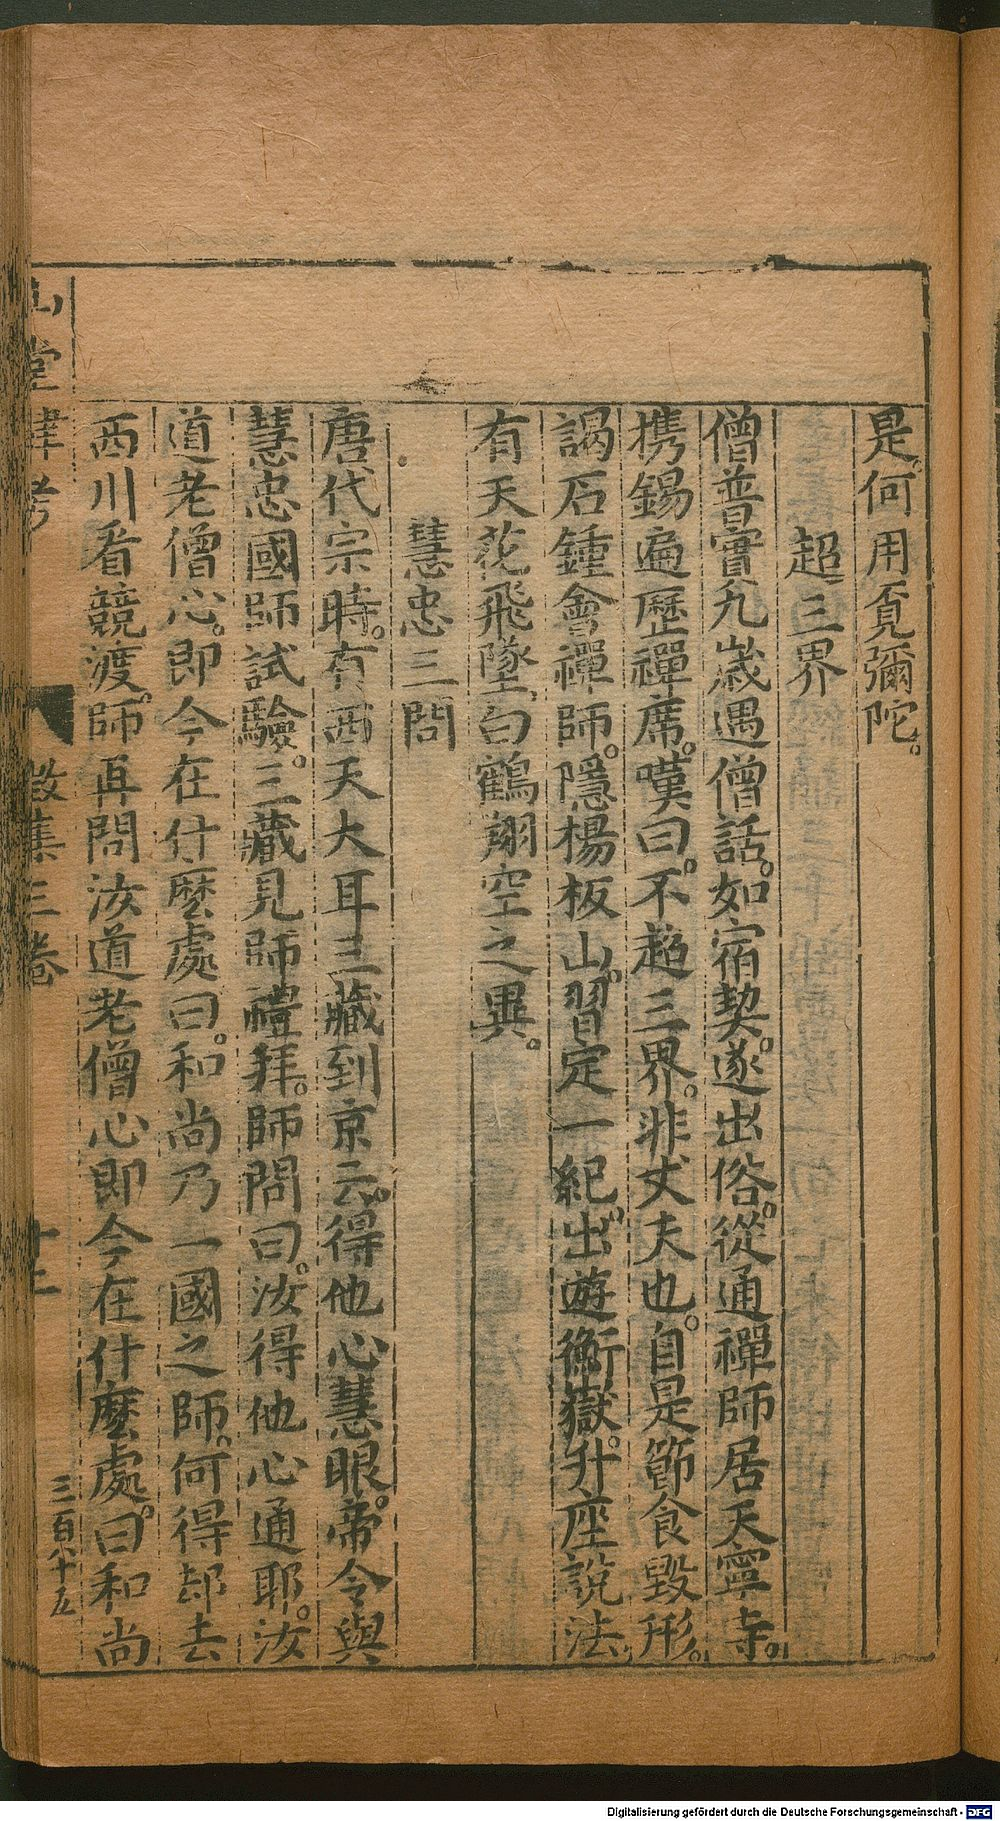 是。何用覔彌陀。
超三界
僧普實九歲遇僧話。如宿契。遂出俗。從通禪師居天寧寺。
携錫遍歷禪席。嘆曰。不超三界。非丈夫也。自是節食毀形。
謁石鍾會禪師。隱楊板山。習定一紀。出遊衡嶽。升座說法
有天花飛墜。白鶴翔空之異。
慧忠三問
唐代宗時。有西天大耳三藏到京云。得他心慧眼。帝令與
慧忠國師試驗。三藏見師禮拜。師問曰。汝得他心通耶。汝
道老僧心。即今在什麼處曰。和尚乃一國之師。何得却去
西川看競渡。師再問汝道老僧心即今在什麼處。曰和尚
山堂肆考
徵集三卷
十二
三百八十五
Digitalisierung gefördert durch die Deutsche Forschungsgemeinschaft - DFG